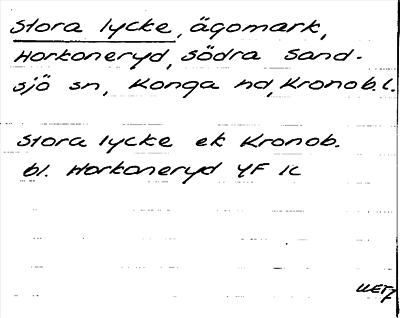 Stora lycke, ägomark,
Horkoneryd, Södra Sand-
sjö sn, Konga hd, Kronob. l.
Stora lycke ek Kronob.
bl. Horkoneryd YF 1c